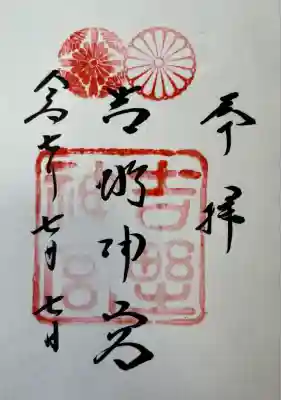 奉拝
吉野神宮
令和七年七月七日
吉野
神宮